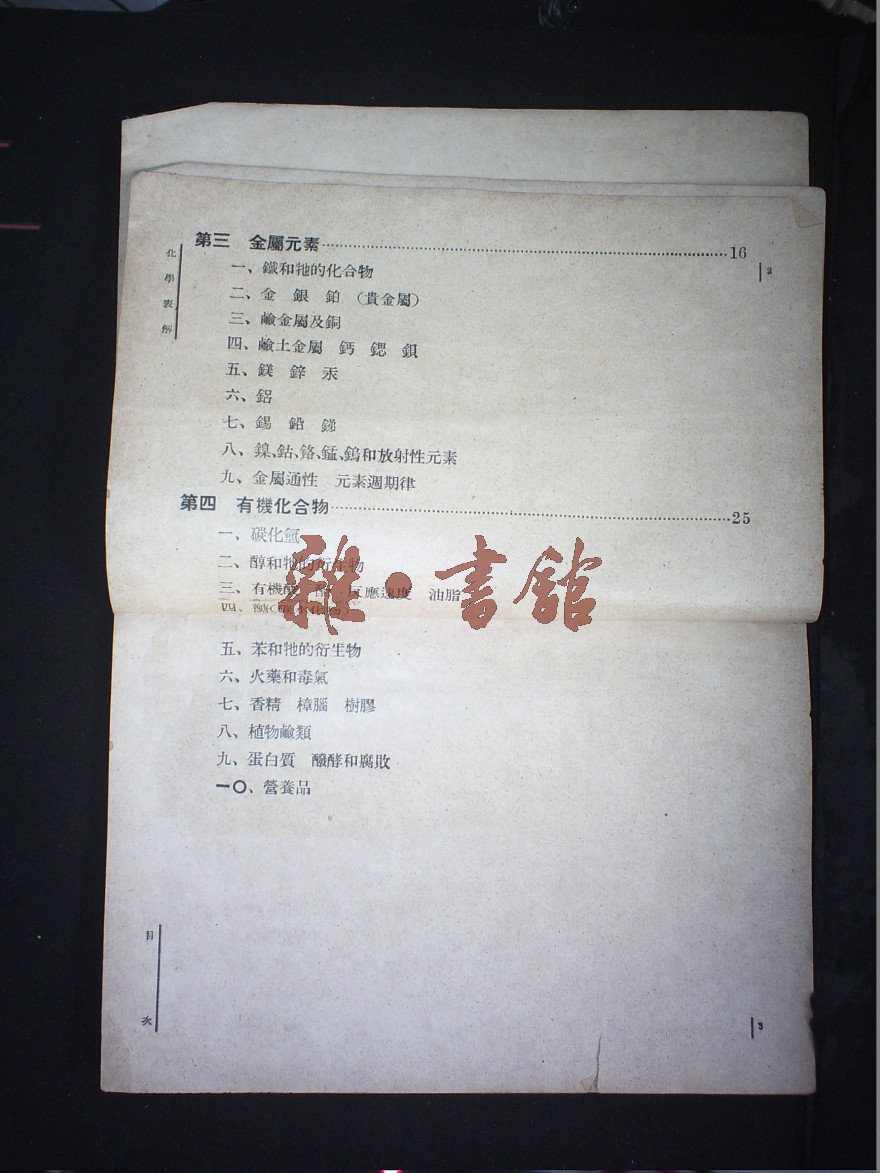 化學表解
2
第三　金屬元素……16
一、鐵和牠的化合物
二、金　銀　鉑　（貴金屬）
三、鹼金屬及銅
四、鹼土金屬　鈣　鍶　鋇
五、鎂　鋅　汞
六、鋁
七、錫　鉛　銻
八、鎳、鈷、鉻、錳、鎢和放射性元素
九、金屬通性　元素週期律
第四　有機化合物……25
一、碳化氫
二、醇和牠的衍生物
三、有機酸　反應速度　油脂
四、醣
五、苯和牠的衍生物
六、火藥和毒氣
七、香精　樟腦　樹膠
八、植物鹼類
九、蛋白質　醱酵和腐敗
一〇、營養品
目次
3
雜·書館